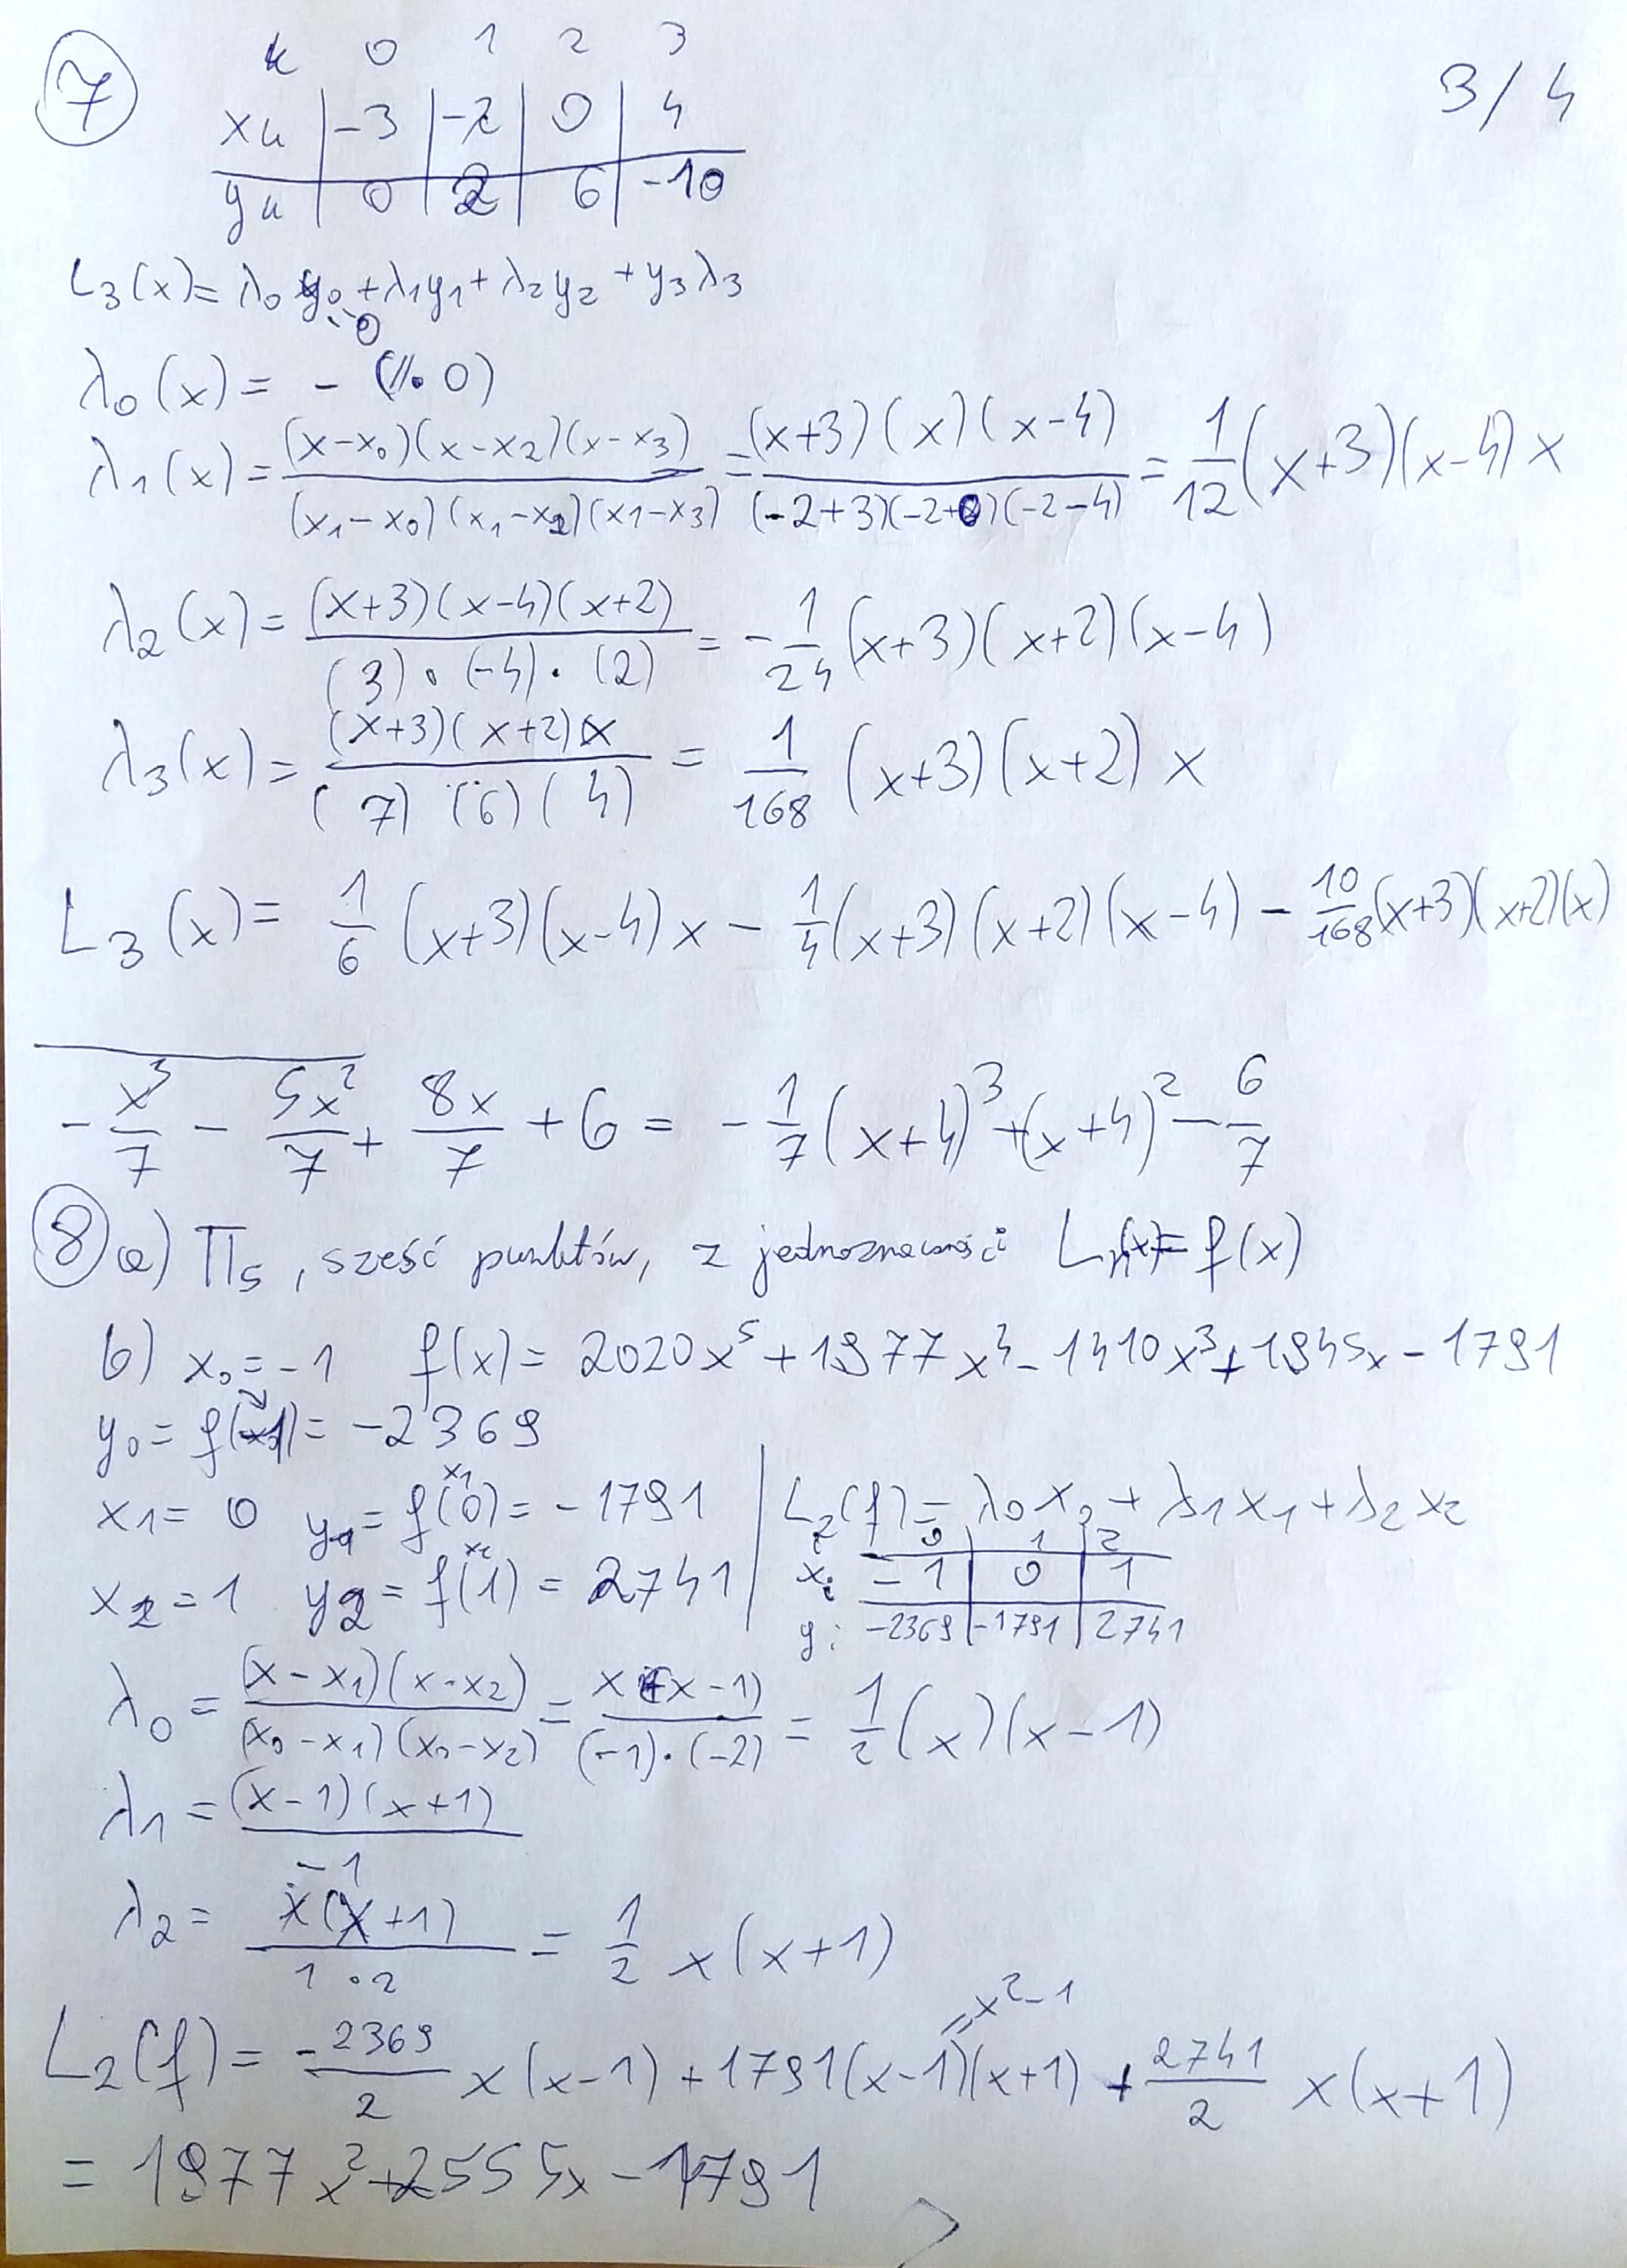 7 k 0 1 2 3 3/4
xk | -3 | -2 | 0 | 4
yk | 0 | 2 | 6 | -10
L₃(x) = λ₀y₀ + λ₁y₁ + λ₂y₂ + y₃λ₃
0
λ₀(x) = - (//·0)
λ₁(x) = (x-x₀)(x-x₂)(x-x₃) / (x₁-x₀)(x₁-x₂)(x₁-x₃) = (x+3)(x)(x-4) / (-2+3)(-2+0)(-2-4) = 1/12 (x+3)(x-4)x
λ₂(x) = (x+3)(x-4)(x+2) / (3)·(-4)·(2) = -1/24 (x+3)(x+2)(x-4)
λ₃(x) = (x+3)(x+2)x / (7)(6)(4) = 1/168 (x+3)(x+2)x
L₃(x) = 1/6 (x+3)(x-4)x - 1/4 (x+3)(x+2)(x-4) - 10/168 (x+3)(x+2)(x)
-x³/7 - 5x²/7 + 8x/7 + 6 = -1/7 (x+4)³ + (x+4)² - 6/7
8 a) Π₅, sześć punktów, z jednoznaczności Lₙ(x) = f(x)
b) x₀ = -1 f(x) = 2020x⁵ + 1977x⁴ - 1410x³ + 1945x - 1791
y₀ = f(-1) = -2369
x₁ = 0 y₁ = f(0) = -1791 x₁
x₂ = 1 y₂ = f(1) = 2741 x₂
L₂(f) = λ₀x₀ + λ₁x₁ + λ₂x₂
0 1 2
xi -1 | 0 | 1
yi -2369 | -1791 | 2741
λ₀ = (x-x₁)(x-x₂) / (x₀-x₁)(x₀-x₂) = x(x-1) / (-1)·(-2) = 1/2 (x)(x-1)
λ₁ = (x-1)(x+1) / -1
λ₂ = x(x+1) / 1·2 = 1/2 x(x+1)
= x²-1
L₂(f) = -2369/2 x(x-1) + 1791(x-1)(x+1) + 2741/2 x(x+1)
= 1977x² + 2555x - 1791